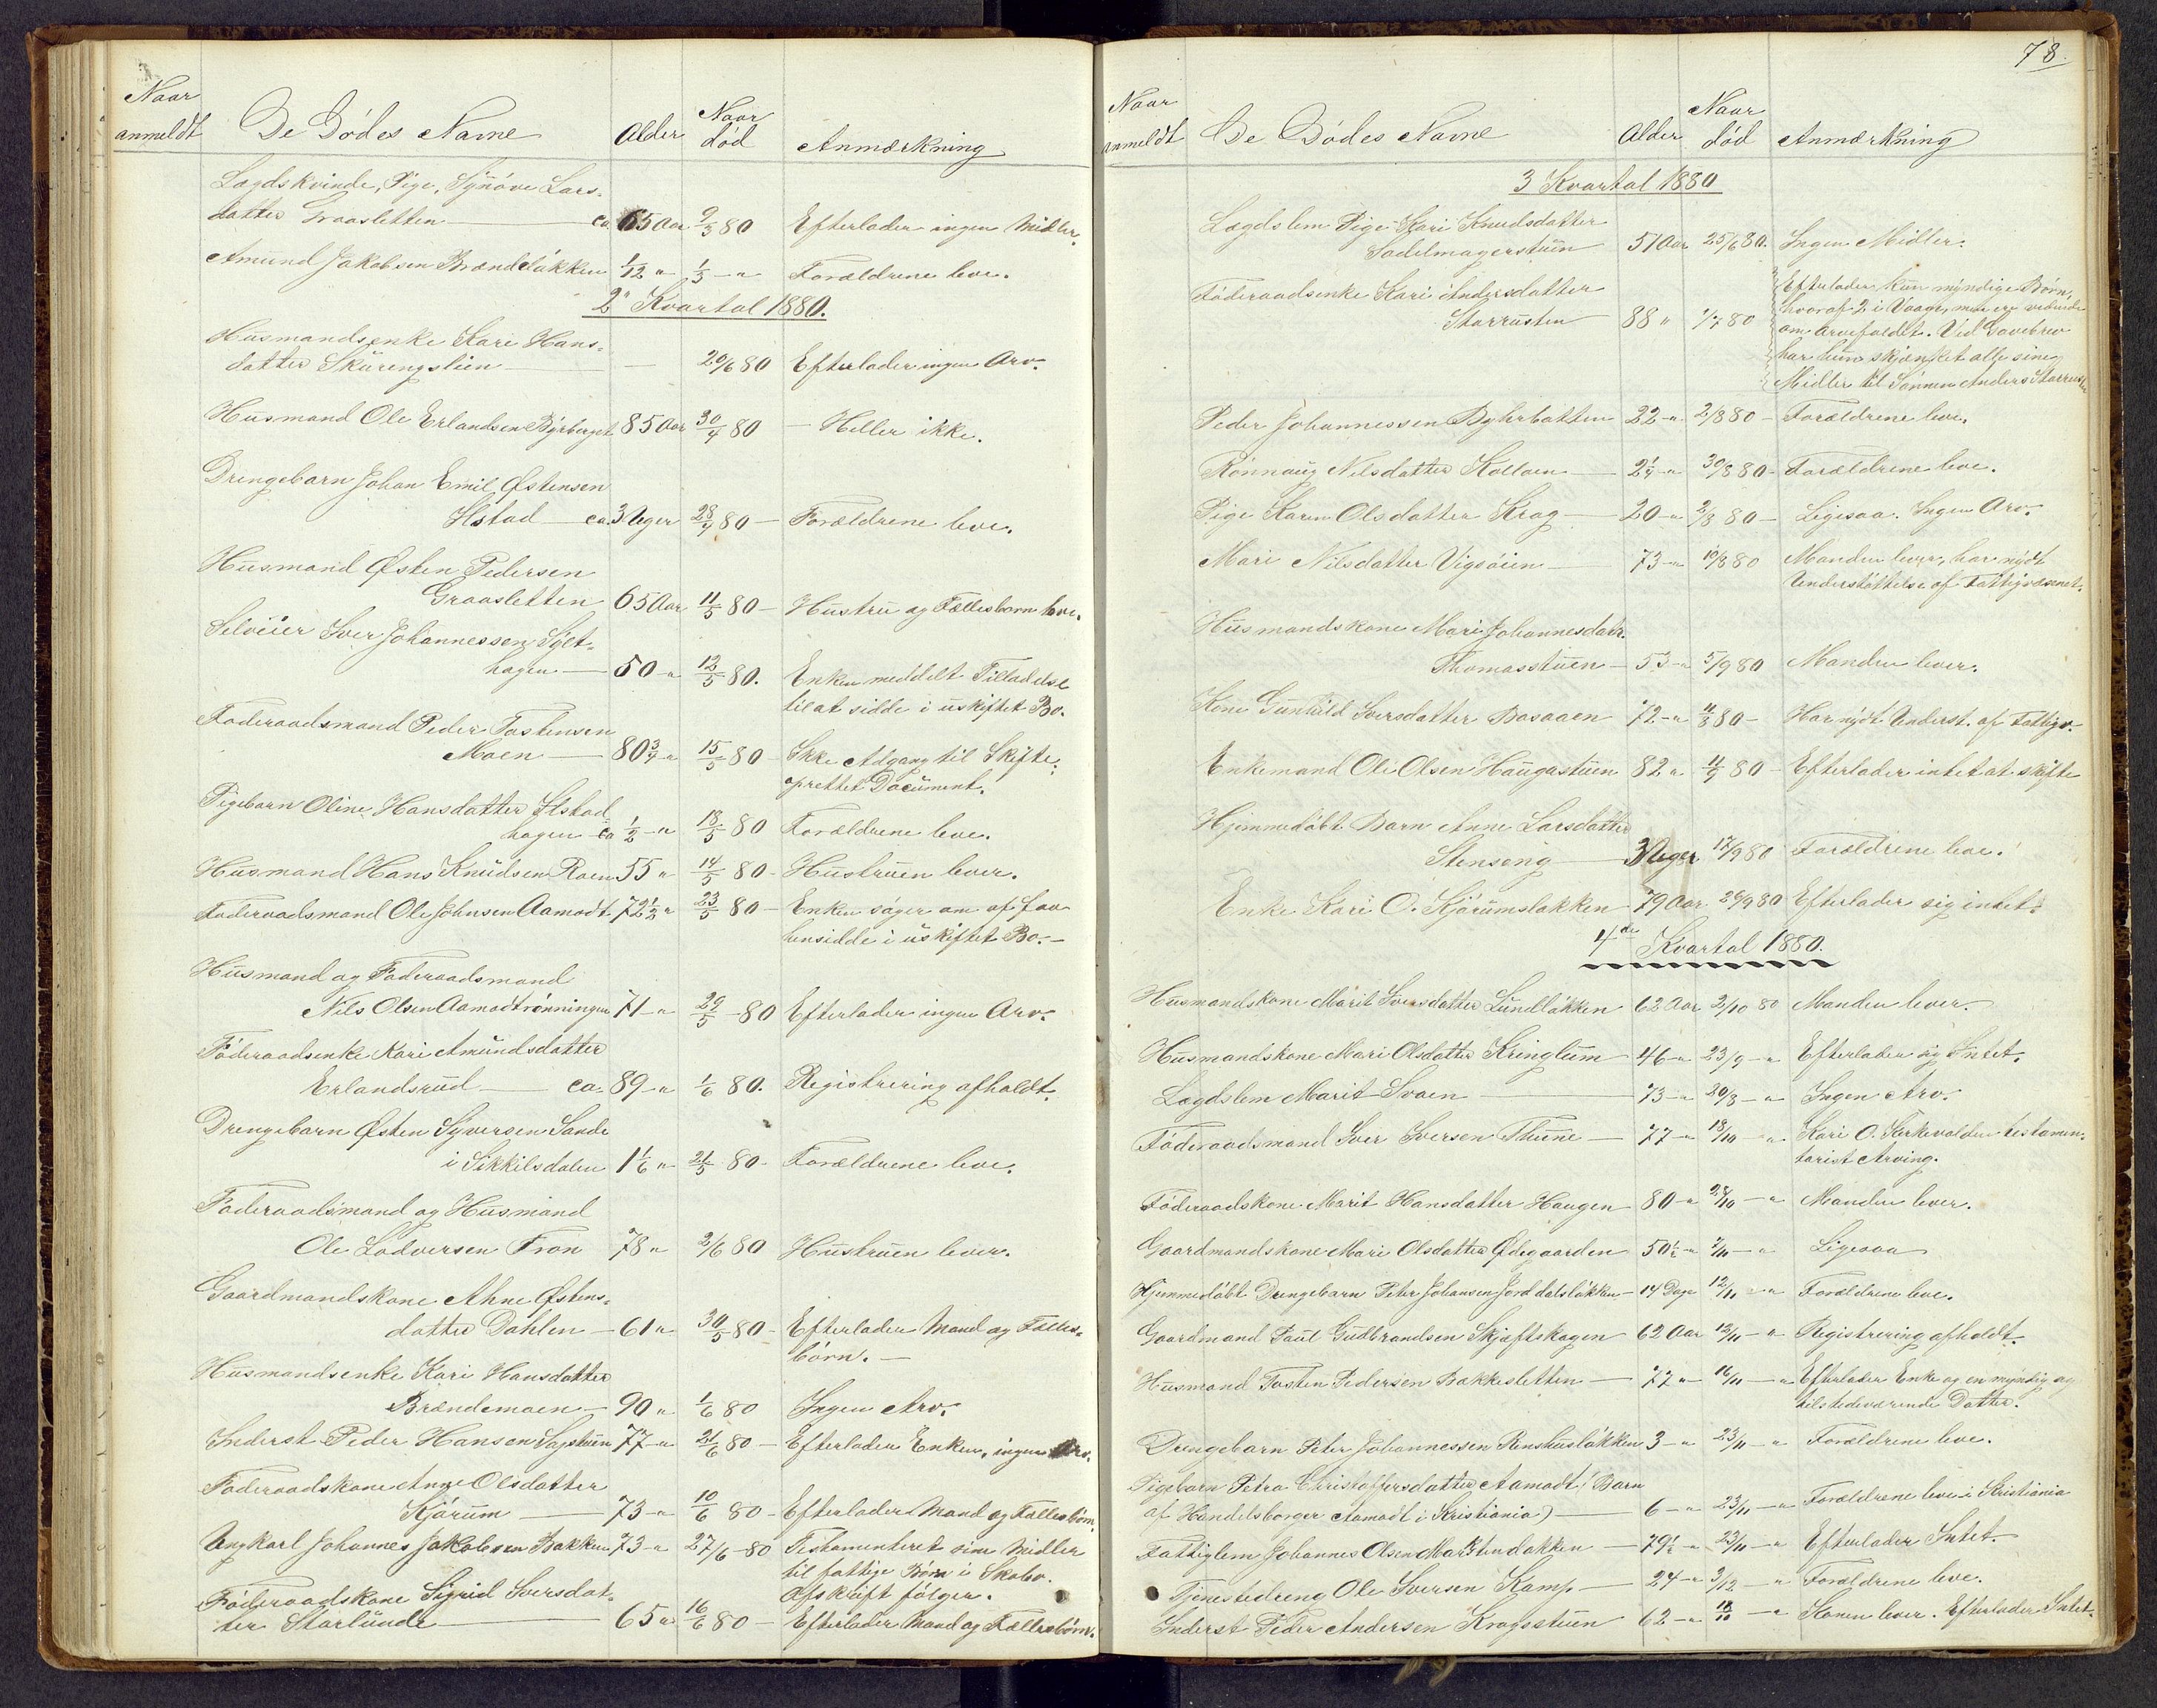 Naar
anmeldt De Dödes Navne Alder Naar död Anmærkning
Lægdskvinde, Pige, Synöve Lars-
datter Graasletten ca. 65 Aar 9/3 80 Efterlader ingen Midler.
Amund Jakobsen Brændlökken 1/12 " 1/5 - " Forældrene leve.
2' Kvartal 1880.
Husmandsenke Kari Hans-
datter Skurengslien — 20/6 80 Efterlader ingen Arv.
Husmand Ole Erlandsen Byrberget 85 Aar 30/4 80 - Heller ikke.
Drengebarn Johan Emil Østensen
Ilstad ca. 3 Uger 28/4 80 - Forældrene leve.
Husmand Østen Pedersen
Graasletten 65 Aar 11/5 80 - Hustru og Fællesbørn leve.
Selveier Iver Johannessen Sylt-
hagen - 50 - " 12/5 80. Enken meddelt Tilladelse
til at sidde i uskiftet Bo.
Föderaadsmand Peder Tostensen
Moen - 80 3/4 - " 15/5 80 - Ikke Adgang til Skifte;
oprettet Document.
Pigebarn Oline Hansdatter Ilstad-
hagen ca 1/2 - " 18/5 80 Forældrene leve.
Husmand Hans Knudsen Roen 55 " 14/5 80 - Hustruen lever.
Föderaadsmand Ole Johnsen Aamodt 72 1/2 " 23/5 80 - Enken søger om at faa
hensidde i uskiftet Bo. -
Husmand og Föderaadsmand
Nils Olsen Aamodtrönningen 71 - " 29/5 - 80 Efterlader ingen Arv.
Föderaadsenke Kari Amundsdatter
Erlandsrud ca. 89 - " 1/6 80. Registrering afholdt.
Drengebarn Østen Syversen Sande
i Sikkilsdalen 1 1/6 " 21/5 80 - Forældrene leve.
Föderaadsmand og Husmand
Ole Lodversen Fron 78 " 2/6 80 Hustruen lever.
Gaardmandskone Ahne Østens-
datter Dahlen - 61 " 30/5 80 - Efterlader Mand og Fælles-
börn. -
Husmandsenke Kari Hansdatter
Brændemoen - 90 " 1/6 80 Ingen Arv.
Inderst Peder Hansen Sagstuen 77 - " 21/6 80 - Efterlader Enken, ingen Arv.
Föderaadskone Anne Olsdatter
Kjörum - 73 - " 10/6 80 - Efterlader Mand og Fællesbörn.
Ungkarl Johannes Jakobsen Bakken 73 - " 27/6 - 80 Testamenteret sine Midler
til fattige Börn i Skabo.
Afskrift fölger.
Föderaadskone Sigrid Iversdat-
ter Storlunde 65 " 16/6 80 - Efterlader Mand og Fællesbörn.
78.
Naar
anmeldt De Dödes Navne Alder Naar död Anmærkning
3 Kvartal 1880
Lægdslem Pige Kari Knudsdatter
Sadelmagerstuen 51 Aar 25/6 80. Ingen Midler.
Föderaadsenke Kari Andersdatter
Storrusten 88 " 1/7 80 Efterlader kun myndige Börn,
hvoraf 2 i Vaage, men ere vidende
om Arvefaldet. Ved Gavebrev
har hun skjænket alle sine
Midler til Sönnen Anders Storrusten
Peder Johannessen Byhrbakken 22 - " 2/8 80 - Forældrene leve.
Rönnaug Nilsdatter Kolloen 2 1/4 - " 30/8 80 - Forældrene leve.
Pige Karen Olsdatter Krag 20 - " 2/8 80 - Ligesaa. Ingen Arv.
Mari Nilsdatter Vigsöien 73 - " 10/8 80 Manden lever, har nydt
Understöttelse af Fattigvæsenet.
Husmandskone Mari Johannesdatr.
Thomasstuen - 53 - " 5/9 80 Manden lever.
Kone Gunhild Iversdatter Basaaen 72 - " 11/8 80 - Har nydt Underst. af Fattigv.
Enkemand Ole Olsen Haugastuen 82 " 11/9 80 - Efterlader intet at skifte
Hjemmedöbt Barn Anne Larsdatter
Stenseng 3 Uger 17/9 80 Forældrene leve.
Enke Kari O. Kjörumslökken 79 Aar 26/9 80 Efterlader sig intet.
4de Kvartal 1880.
Husmandskone Marit Iversdatter Lundlökken 62 Aar 2/10 80 Manden lever.
Husmandskone Mari Olsdatter Kringlum 46 - " 23/9 - " Efterlader sig Intet.
Lægdslem Marit Svaen 73 - " 20/8 - " Ingen Arv.
Föderaadsmand Iver Iversen Thune 77 - " 18/10 - " Kari O. Kirkevolden testamen-
tarist Arving.
Föderaadskone Marit Hansdatter Haugen 80 - " 28/10 - " Manden lever.
Gaardmandskone Mari Olsdatter Ødegaarden 50 1/2 - " 7/11 - " Ligesaa
Hjemmedöbt Drengebarn Peter Johansen Jorddalslökken - 14 Dage 12/11 - " Forældrene leve.
Gaardmand Paul Gudbrandsen Skjæftskagen 62 Aar 12/11 - " Registrering afholdt.
Husmand Tosten Pedersen Bakkesletten 77 " 16/11 - " Efterlader Enke og en myndig og
tilstedeværende Datter.
Drengebarn Peter Johannessen Renshuslökken 3 - " 23/11 - " Forældrene leve.
Pigebarn Petra Christoffersdatter Aamodt (Barn
af Handelsborger Aamodt i Kristiania) 6 - " 23/11 - " Forældrene leve i Kristiania
Fattiglem Johannes Olsen 79 1/2 - " 23/11 - " Efterlader Intet.
Tjenestedreng Ole Iversen Kamp 24 - " 3/12 - " Forældrene leve.
Inderst Peder Andersen Kragsstuen 62 - " 18/10 - " Konen lever. Efterlader Intet.